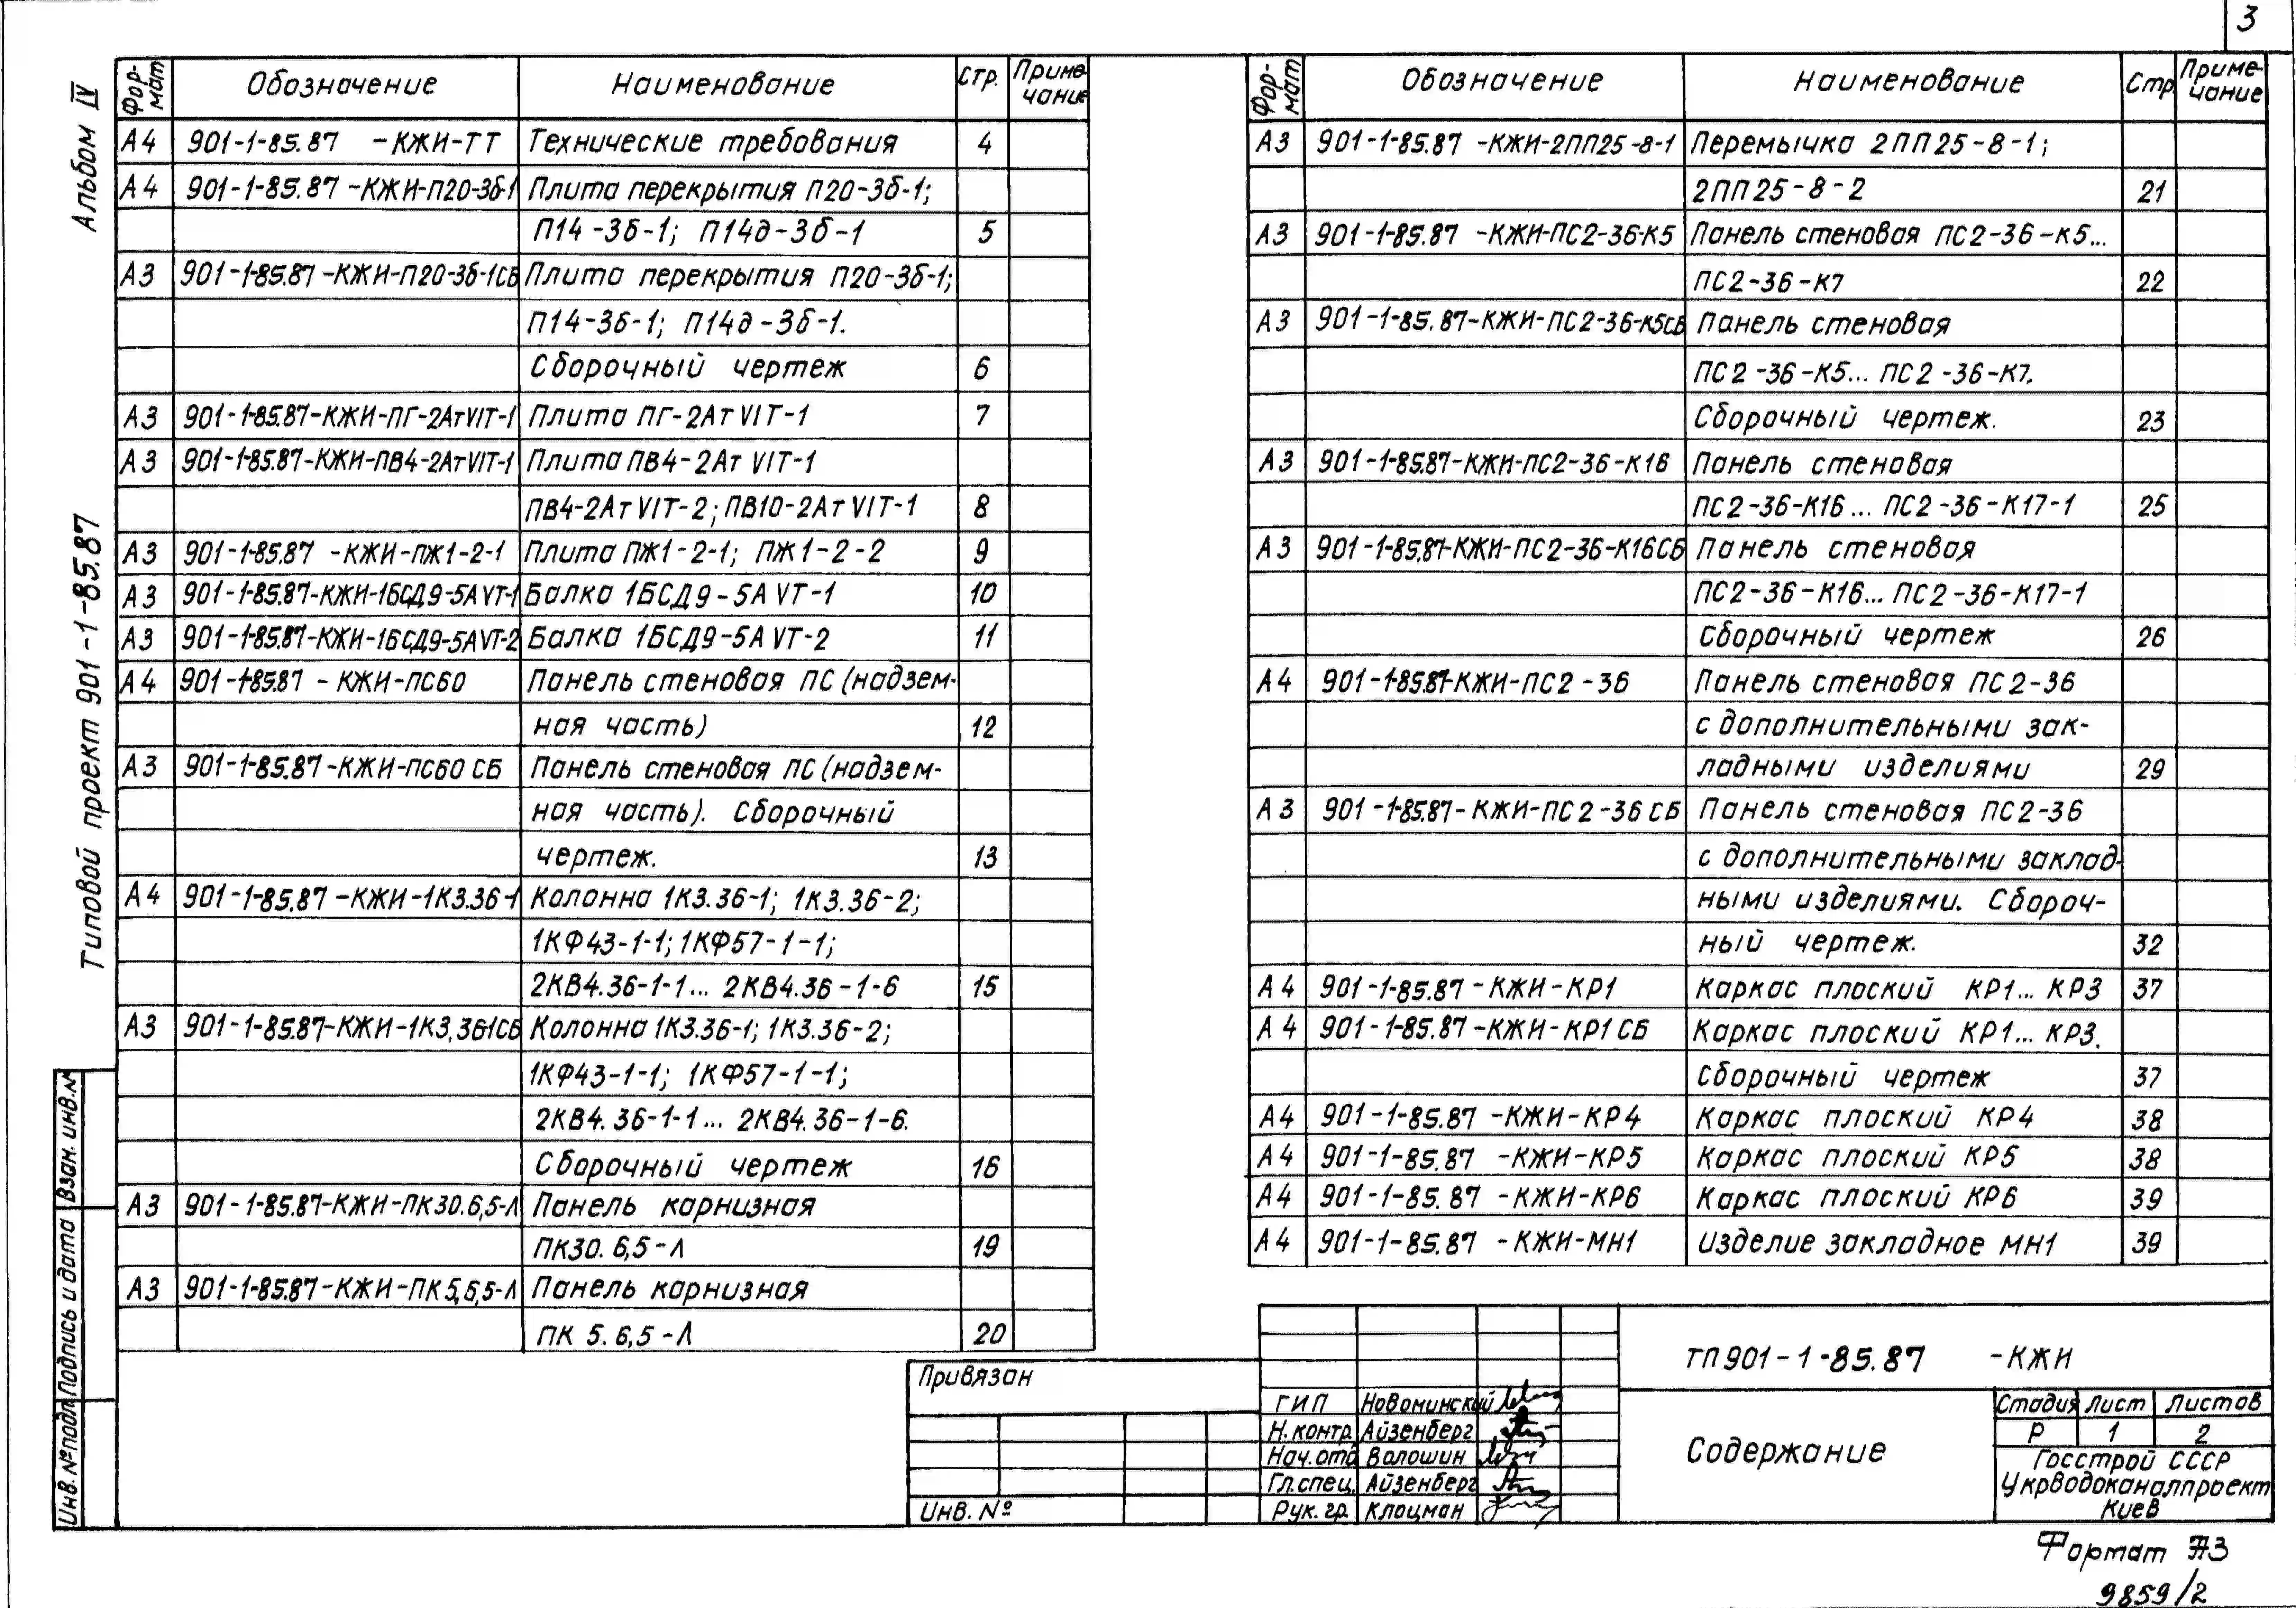 3
Альбом IV
Типовой проект 901-1-85.87
Фор-мат Обозначение Наименование Стр. Приме-чание
А4 901-1-85.87 -КЖИ-ТТ Технические требования 4
А4 901-1-85.87-КЖИ-П20-3б-1 Плита перекрытия П20-3б-1;
П14-3б-1; П14д-3б-1 5
А3 901-1-85.87-КЖИ-П20-3б-1СБ Плита перекрытия П20-3б-1;
П14-3б-1; П14д-3б-1.
Сборочный чертеж 6
А3 901-1-85.87-КЖИ-ПГ-2АтVIТ-1 Плита ПГ-2АтVIТ-1 7
А3 901-1-85.87-КЖИ-ПВ4-2АтVIТ-1 Плита ПВ4-2АтVIТ-1
ПВ4-2АтVIТ-2; ПВ10-2АтVIТ-1 8
А3 901-1-85.87 -КЖИ-ПЖ1-2-1 Плита ПЖ1-2-1; ПЖ1-2-2 9
А3 901-1-85.87-КЖИ-1БСД9-5АVТ-1 Балка 1БСД9-5АVТ-1 10
А3 901-1-85.87-КЖИ-1БСД9-5АVТ-2 Балка 1БСД9-5АVТ-2 11
А4 901-1-85.87 -КЖИ-ПС60 Панель стеновая ПС (надзем-
ная часть) 12
А3 901-1-85.87-КЖИ-ПС60 СБ Панель стеновая ПС (надзем-
ная часть). Сборочный
чертеж. 13
А4 901-1-85.87-КЖИ-1К3.36-1 Колонна 1К3.36-1; 1К3.36-2;
1КФ43-1-1; 1КФ57-1-1;
2КВ4.36-1-1... 2КВ4.36-1-6 15
А3 901-1-85.87-КЖИ-1К3,361СБ Колонна 1К3.36-1; 1К3.36-2;
1КФ43-1-1; 1КФ57-1-1;
2КВ4.36-1-1... 2КВ4.36-1-6.
Сборочный чертеж 16
А3 901-1-85.87-КЖИ-ПК30.6,5-Л Панель карнизная
ПК30.6,5-Л 19
А3 901-1-85.87-КЖИ-ПК5,6,5-Л Панель карнизная
ПК 5.6,5-Л 20
Фор-мат Обозначение Наименование Стр. Приме-чание
А3 901-1-85.87 -КЖИ-2ПП25-8-1 Перемычка 2ПП25-8-1;
2ПП25-8-2 21
А3 901-1-85.87 -КЖИ-ПС2-36-К5 Панель стеновая ПС2-36-К5...
ПС2-36-К7 22
А3 901-1-85.87-КЖИ-ПС2-36-К5СБ Панель стеновая
ПС2-36-К5... ПС2-36-К7.
Сборочный чертеж. 23
А3 901-1-85.87-КЖИ-ПС2-36-К16 Панель стеновая
ПС2-36-К16... ПС2-36-К17-1 25
А3 901-1-85.87-КЖИ-ПС2-36-К16СБ Панель стеновая
ПС2-36-К16... ПС2-36-К17-1
Сборочный чертеж 26
А4 901-1-85.87-КЖИ-ПС2-36 Панель стеновая ПС2-36
с дополнительными зак-
ладными изделиями 29
А3 901-1-85.87-КЖИ-ПС2-36 СБ Панель стеновая ПС2-36
с дополнительными заклад-
ными изделиями. Сбороч-
ный чертеж. 32
А4 901-1-85.87-КЖИ-КР1 Каркас плоский КР1... КР3 37
А4 901-1-85.87-КЖИ-КР1СБ Каркас плоский КР1... КР3.
Сборочный чертеж 37
А4 901-1-85.87 -КЖИ-КР4 Каркас плоский КР4 38
А4 901-1-85.87 -КЖИ-КР5 Каркас плоский КР5 38
А4 901-1-85.87 -КЖИ-КР6 Каркас плоский КР6 39
А4 901-1-85.87 -КЖИ-МН1 Изделие закладное МН1 39
Взам. инв.№
Подпись и дата
Инв.№подл
Привязан
Инв. №
ГИП Новоминский
Н.контр. Айзенберг
Нач.отд Валошин
Гл.спец. Айзенберг
Рук. гр. Клацман
ТП901-1-85.87 -КЖИ
Содержание
Стадия Лист Листов
Р 1 2
Госстрой СССР
Укрводоканалпроект
Киев
Формат А3
9859/2